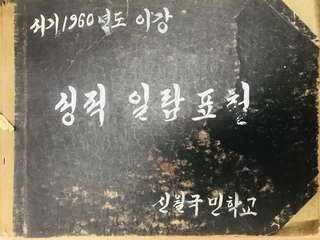 서기1960년도 이강
성적 일람표철
신월국민학교